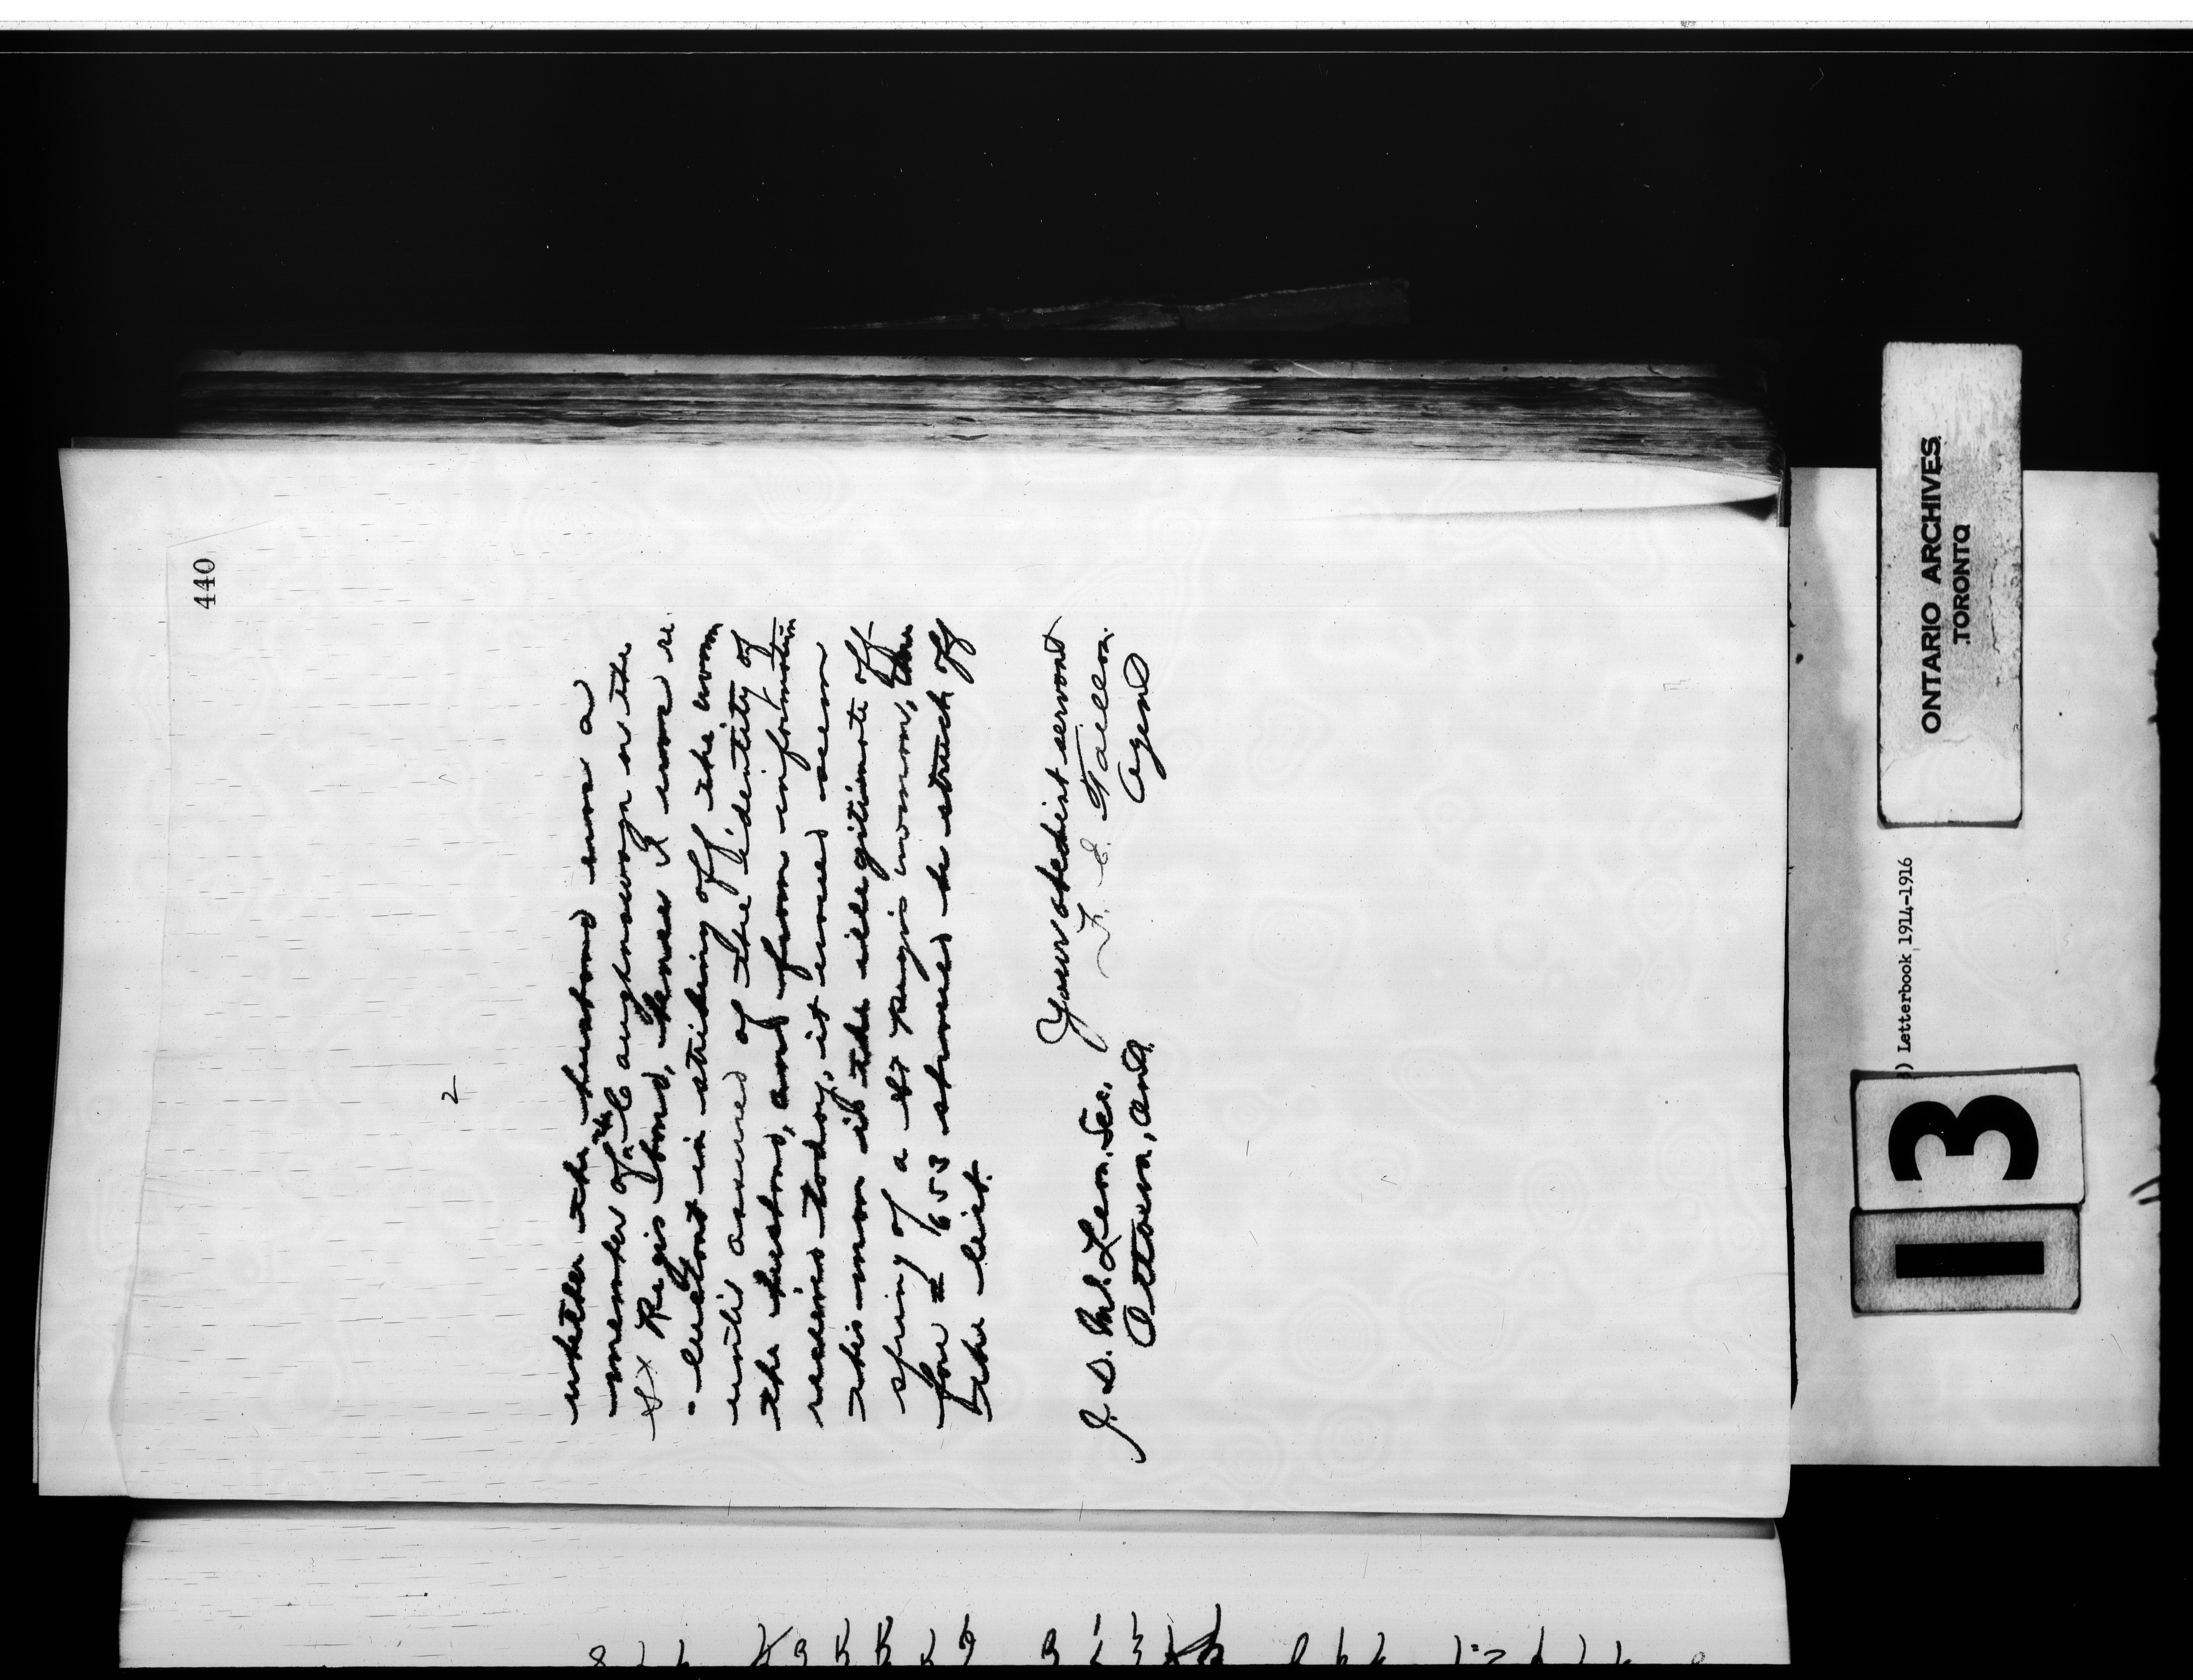 440
2
whether the husband was a
member of the Caughnawaga or the
St Regis band, hence I was re
-luctant in striking off the woman
until assured of the identity of
the husband, and from information
received today, it would seem
this man is the illegitimate off
spring of a St Regis woman, there
fore # 653 should be struck off
the list.
Your obedient servant
F. E. Taillon.
Agent
J. D. McLean, Sec.
Ottawa, Ont.
ONTARIO ARCHIVES
TORONTO
) Letterbook 1914-1916
13